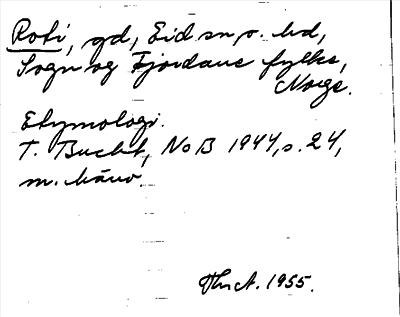 Roti, gd, Eid sn o. hd,
Sogn og Fjordane fylke,
Norge.
Etymologi.
T. Bucht, NoB 1944, s. 24,
m. hänv.
1955.